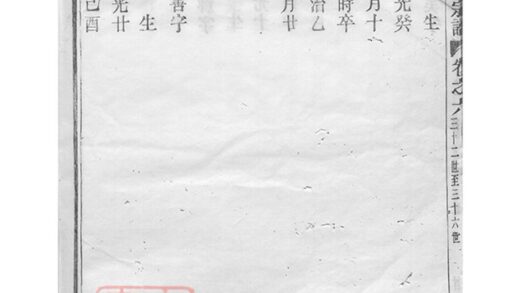 宗譜 卷之六 三十二世至三十六世
生
光癸
月十
時卒
治乙
月廿
善字
生
光廿
己酉